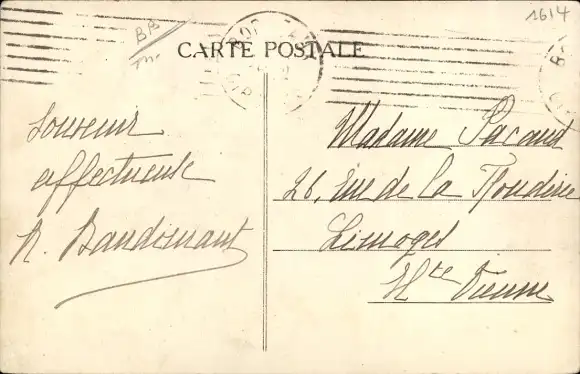 1614
BB
CARTE POSTALE
Souvenir
affectueux
Madame Pacaud
26, rue de la Fonderie
Limoges
Hte Vienne